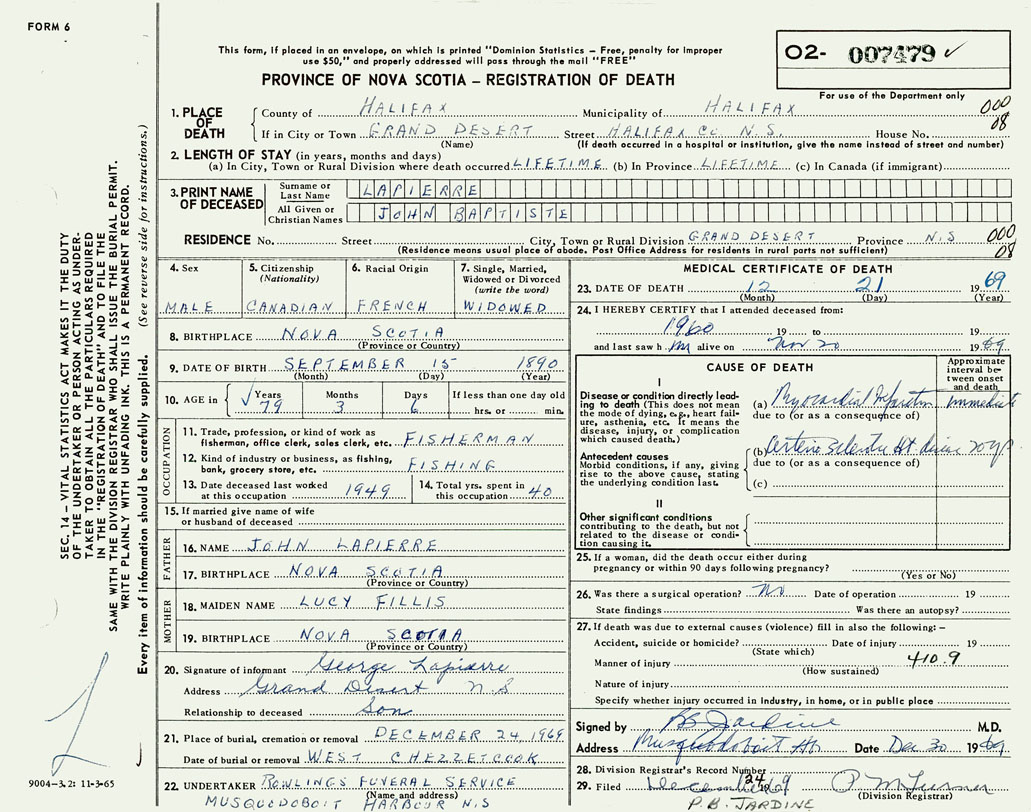 FORM 6
This form, if placed in an envelope, on which is printed "Dominion Statistics – Free, penalty for improper
use $50," and properly addressed will pass through the mail "FREE"
PROVINCE OF NOVA SCOTIA – REGISTRATION OF DEATH
O2- 007479 ✓
For use of the Department only
000
08
1. PLACE OF DEATH
County of HALIFAX Municipality of HALIFAX
If in City or Town GRAND DESERT Street HALIFAX CO. N.S. House No.
(Name) (If death occurred in a hospital or institution, give the name instead of street and number)
2. LENGTH OF STAY (in years, months and days)
(a) In City, Town or Rural Division where death occurred LIFETIME (b) In Province LIFETIME (c) In Canada (if immigrant)
3. PRINT NAME OF DECEASED
Surname or Last Name LAPIERRE
All Given or Christian Names JOHN BAPTISTE
RESIDENCE No. Street City, Town or Rural Division GRAND DESERT Province N.S 000
(Residence means usual place of abode. Post Office Address for residents in rural parts not sufficient) 08
4. Sex
MALE
5. Citizenship
(Nationality)
CANADIAN
6. Racial Origin
FRENCH
7. Single, Married,
Widowed or Divorced
(write the word)
WIDOWED
8. BIRTHPLACE NOVA SCOTIA
(Province or Country)
9. DATE OF BIRTH SEPTEMBER 15 1890
(Month) (Day) (Year)
10. AGE in ✓ Years Months Days If less than one day old
79 3 6 hrs. or min.
OCCUPATION
11. Trade, profession, or kind of work as
fisherman, office clerk, sales clerk, etc. FISHERMAN
12. Kind of industry or business, as fishing,
bank, grocery store, etc. FISHING
13. Date deceased last worked
at this occupation 1949
14. Total yrs. spent in
this occupation 40
15. If married give name of wife
or husband of deceased
FATHER
16. NAME JOHN LAPIERRE
17. BIRTHPLACE NOVA SCOTIA
(Province or Country)
MOTHER
18. MAIDEN NAME LUCY FILLIS
19. BIRTHPLACE NOVA SCOTIA
(Province or Country)
20. Signature of informant George Lapierre
Address Grand Desert N.S
Relationship to deceased Son
21. Place of burial, cremation or removal DECEMBER 24, 1969
Date of burial or removal WEST CHEZZETCOOK
22. UNDERTAKER ROWLINGS FUNERAL SERVICE
(Name and address)
MUSQUEDOBOIT HARBOUR N.S
MEDICAL CERTIFICATE OF DEATH
23. DATE OF DEATH 12 21 1969
(Month) (Day) (Year)
24. I HEREBY CERTIFY that I attended deceased from:
1960 19 to 19
and last saw h im alive on Nov 20 1969
CAUSE OF DEATH
Approximate
interval be-
tween onset
and death
I
Disease or condition directly lead-
ing to death (This does not
mean the mode of dying, e.g., heart fail-
ure, asthenia, etc. It means the
disease, injury, or complication
which caused death.)
(a) Myocardial Infarction immediate
due to (or as a consequence of)
Antecedent causes
Morbid conditions, if any, giving
rise to the above cause, stating
the underlying condition last.
(b) 20 yr
due to (or as a consequence of)
(c)
II
Other significant conditions
contributing to the death, but not
related to the disease or condi-
tion causing it.
25. If a woman, did the death occur either during
pregnancy or within 90 days following pregnancy?
(Yes or No)
26. Was there a surgical operation? No Date of operation 19
State findings Was there an autopsy?
27. If death was due to external causes (violence) fill in also the following: –
Accident, suicide or homicide? Date of injury 19
(State which)
Manner of injury 410.9
(How sustained)
Nature of injury
Specify whether injury occurred in Industry, in home, or in public place
Signed by P.B. Jardine M.D.
Address Musquodoboit Hr Date Dec 30 1969
28. Division Registrar's Record Number
29. Filed December 24 1969 P M Turner
(Division Registrar)
P.B. JARDINE
SEC. 14 – VITAL STATISTICS ACT MAKES IT THE DUTY
OF THE UNDERTAKER OR PERSON ACTING AS UNDER-
TAKER TO OBTAIN ALL THE PARTICULARS REQUIRED
IN THE "REGISTRATION OF DEATH" AND TO FILE THE
SAME WITH THE DIVISION REGISTRAR WHO SHALL ISSUE THE BURIAL PERMIT.
WRITE PLAINLY WITH UNFADING INK. THIS IS A PERMANENT RECORD.
Every item of information should be carefully supplied. (See reverse side for instructions.)
9004-3.2: 11-3-65